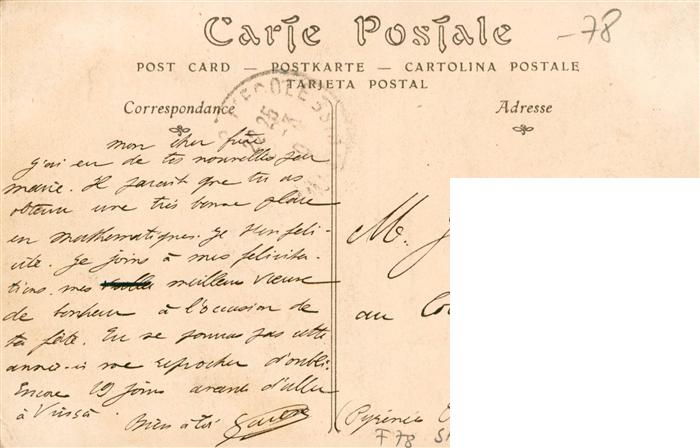 Carte Postale
-78
POST CARD — POSTKARTE — CARTOLINA POSTALE
TARJETA POSTAL
Correspondance
Adresse
mon cher frère
j'ai eu de tes nouvelles par
marie. Il parait que tu as
obtenu une très bonne place
en mathématiques. Je t'en féli-
cite. Je joins à mes félicita-
tions mes meilleurs vœux
de bonheur à l'occasion de
ta fête. Tu ne pourras pas cette
année-ci me reprocher d'oubli.
Encore 19 jours avant d'aller
à Vinça.
Bien à toi
M. J
au Co
(Pyrénées
F 78